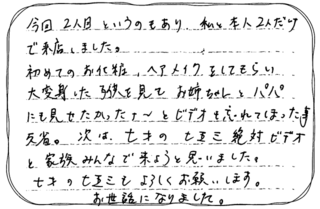 今回 2人目というのもあり、私と本人2人だけ
で来店しました。
初めてのお化粧、ヘアメイクをしてもらい
大変身した子供を見てお姉ちゃんとパパ
にも見せたかったァ〜とビデオを忘れてしまった事
反省。次は、七才の七五三絶対ビデオ
と家族みんなで来ようと思いました。
七才の七五三もよろしくお願いします。
お世話になりました。